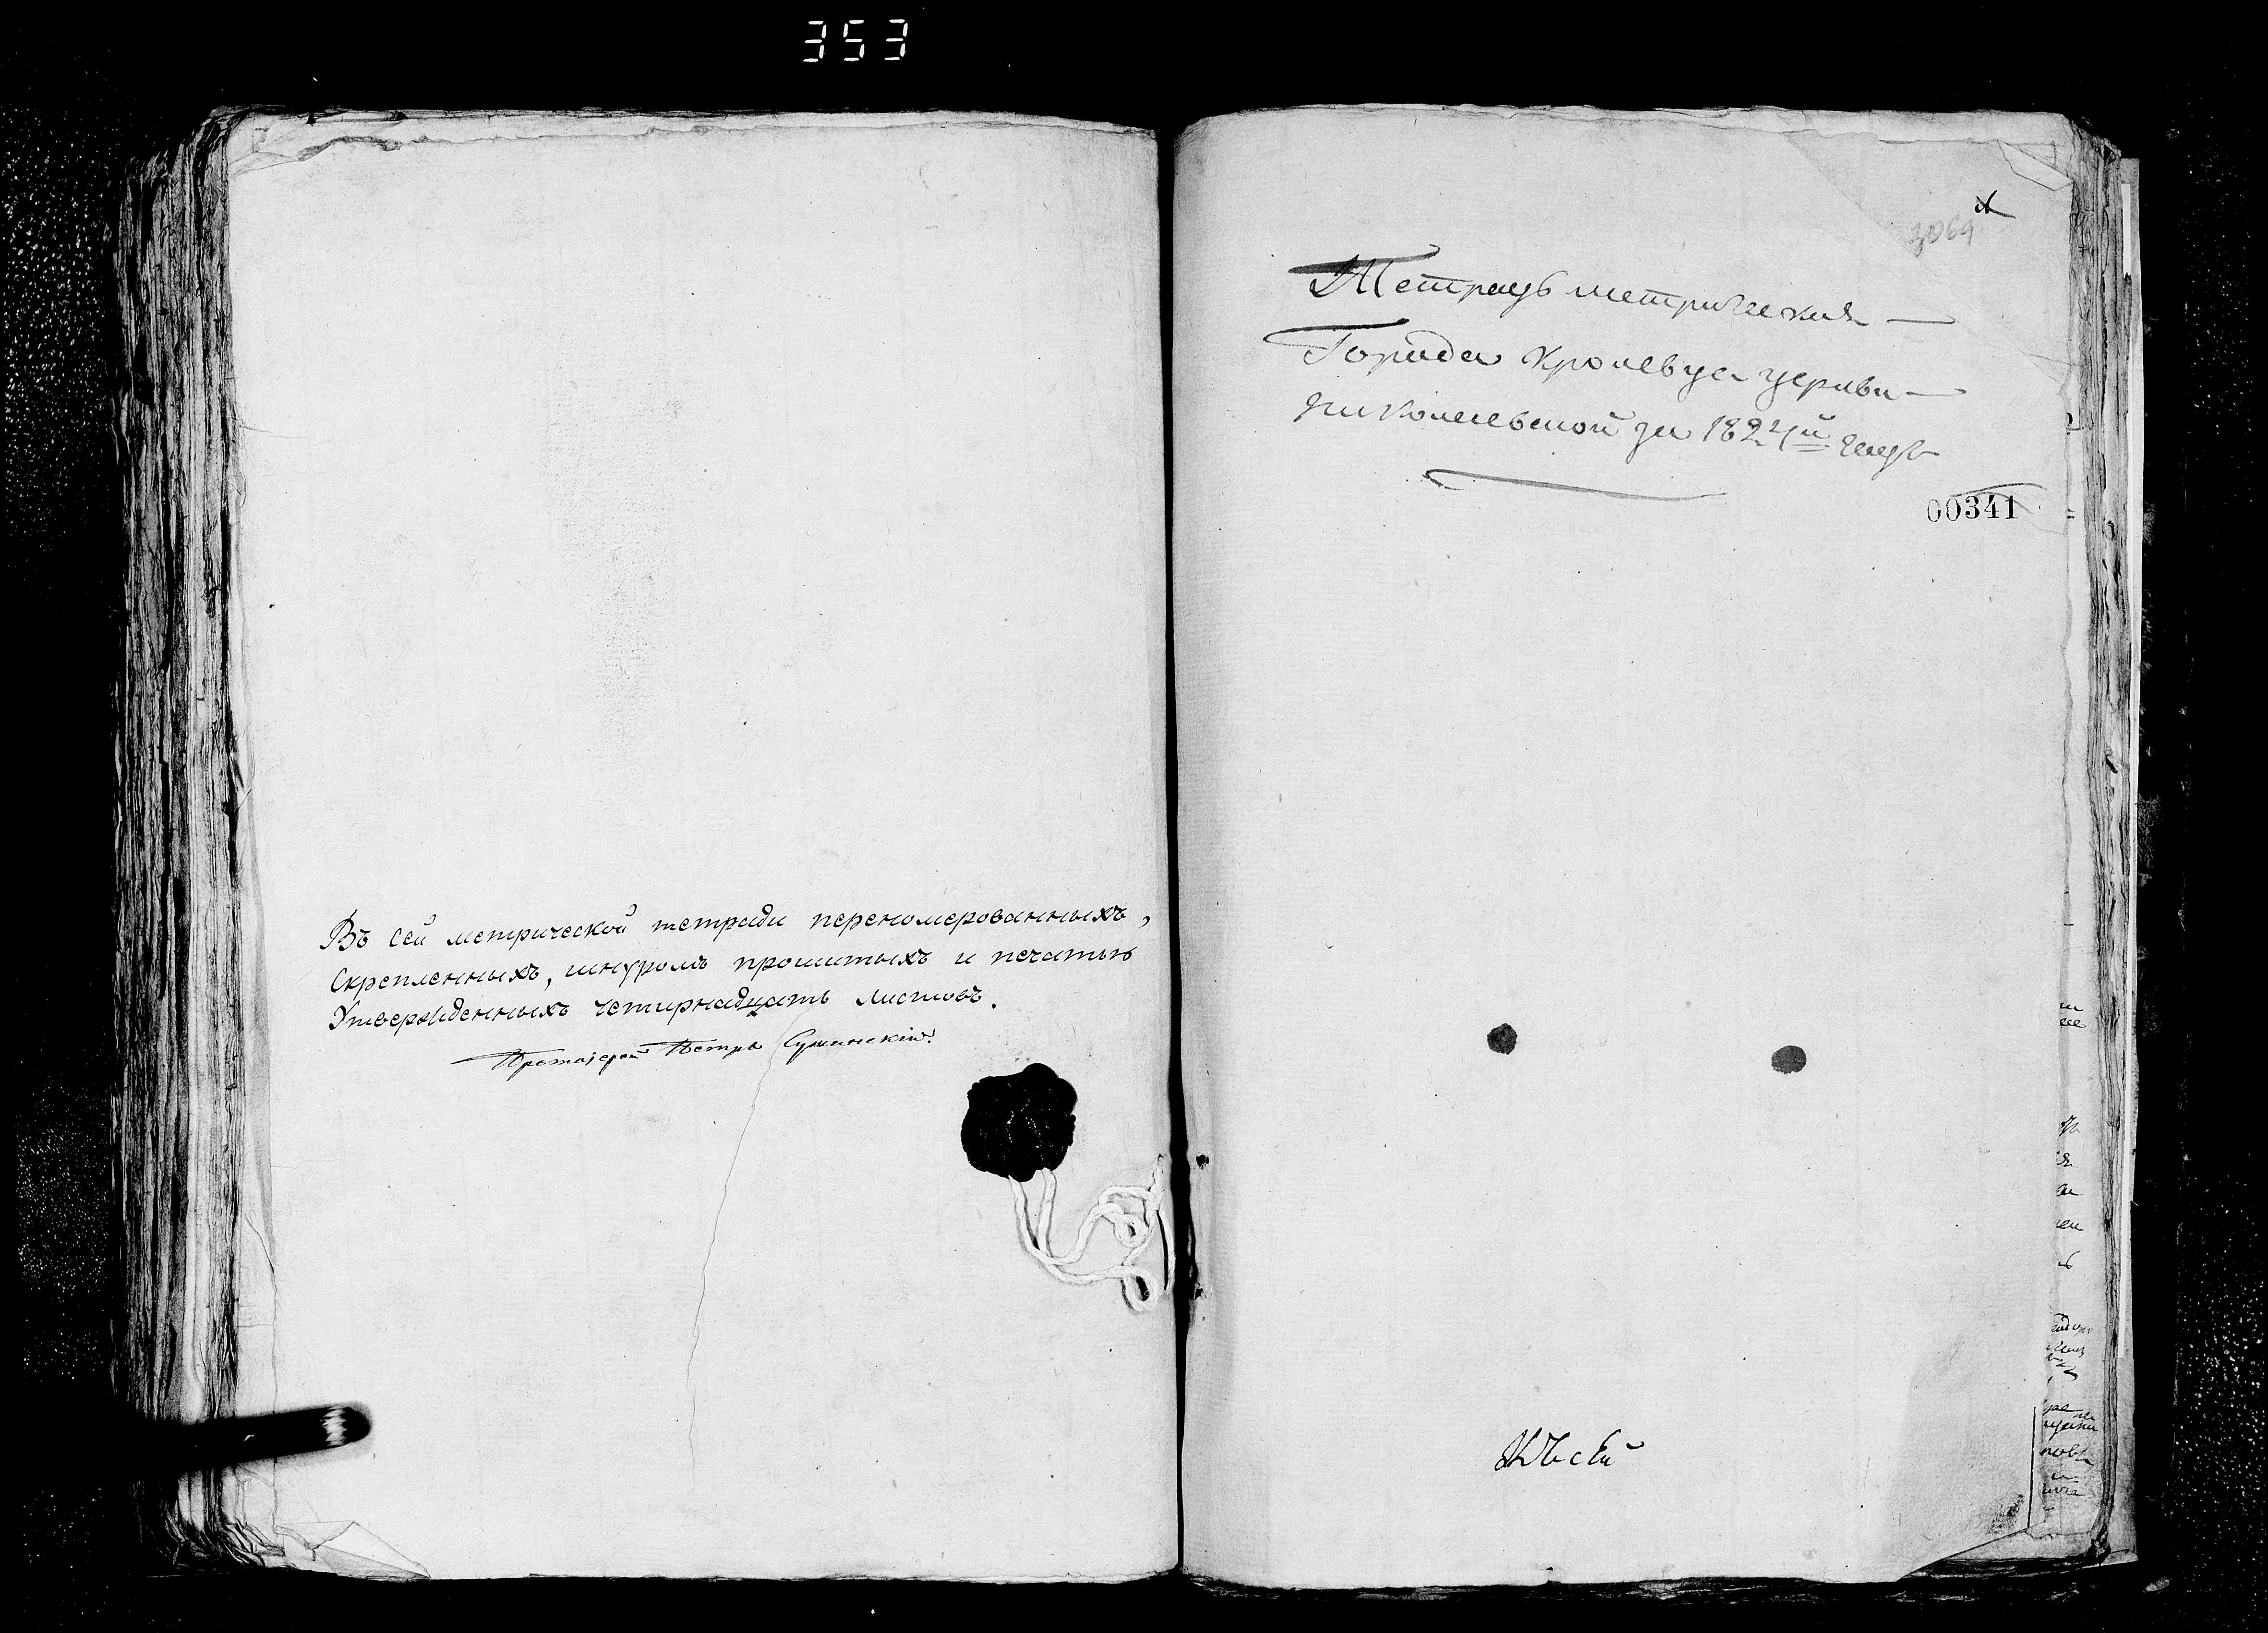 353
Въ сей метрической тетради переномерованныхъ,
скрепленныхъ, шнуромъ прошитыхъ и печатью
Утвержденныхъ четирнадцать листовъ.
Протоіерей Петръ
Тетрадь метрическая
Города Кролевца церкви
Николаевской за 1824й годъ
00341